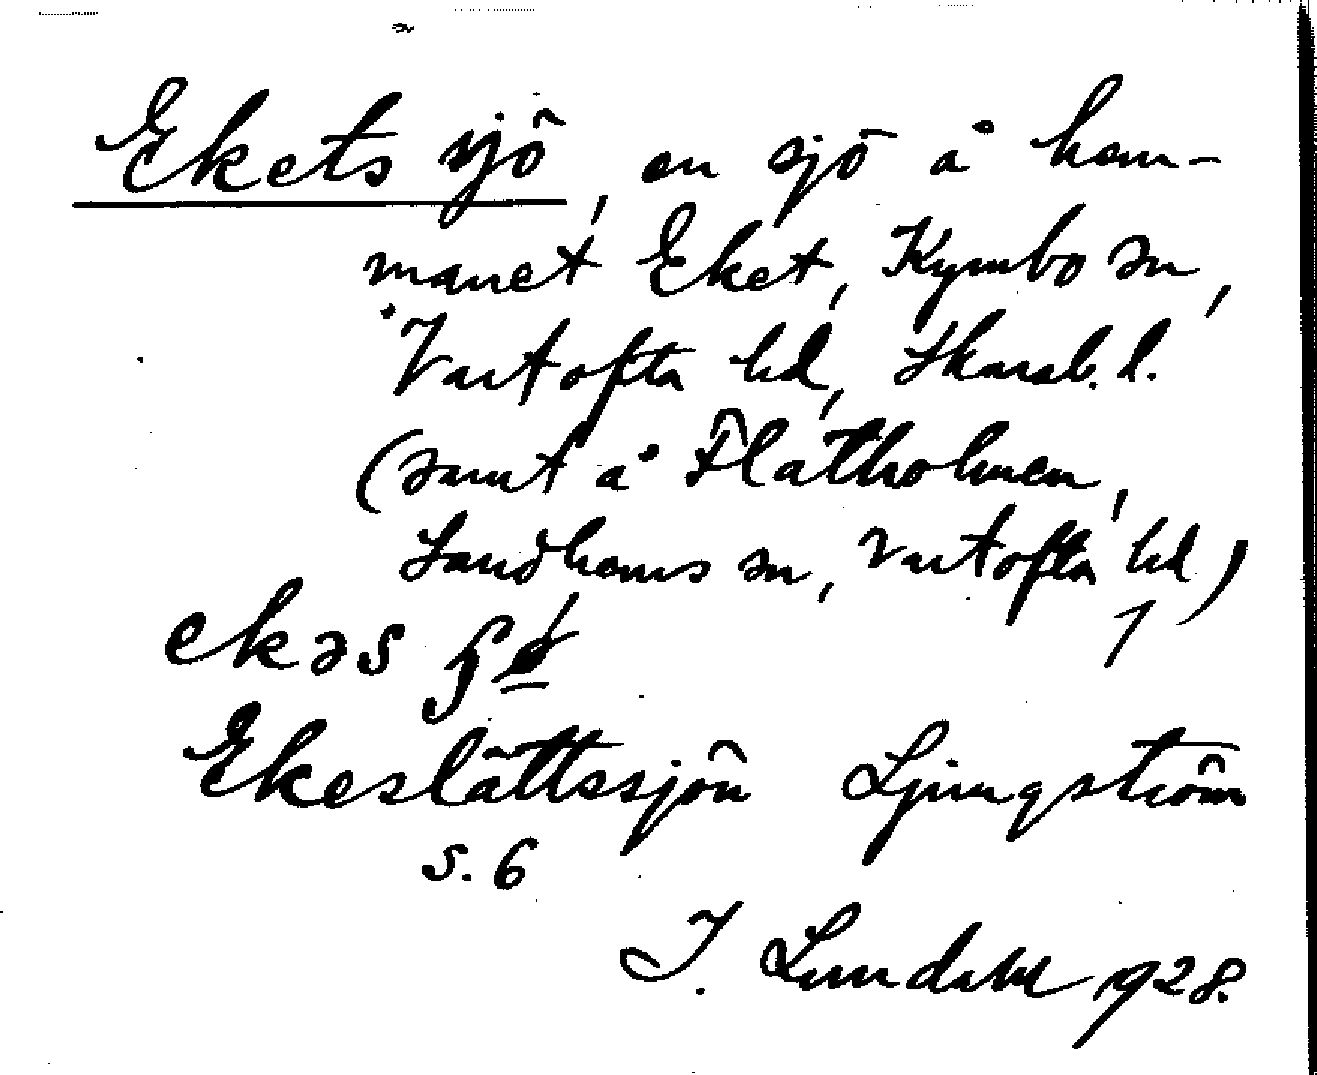 Ekets sjö, en sjö å hem-
manet Eket, Kymbo sn,
Vartofta hd, Skarab. l.
(samt å Flatholmen,
Sandhems sn, Vartofta hd)
ekəs
Ekeslättssjön Ljungström
s. 6
I. Lundahl 1928.